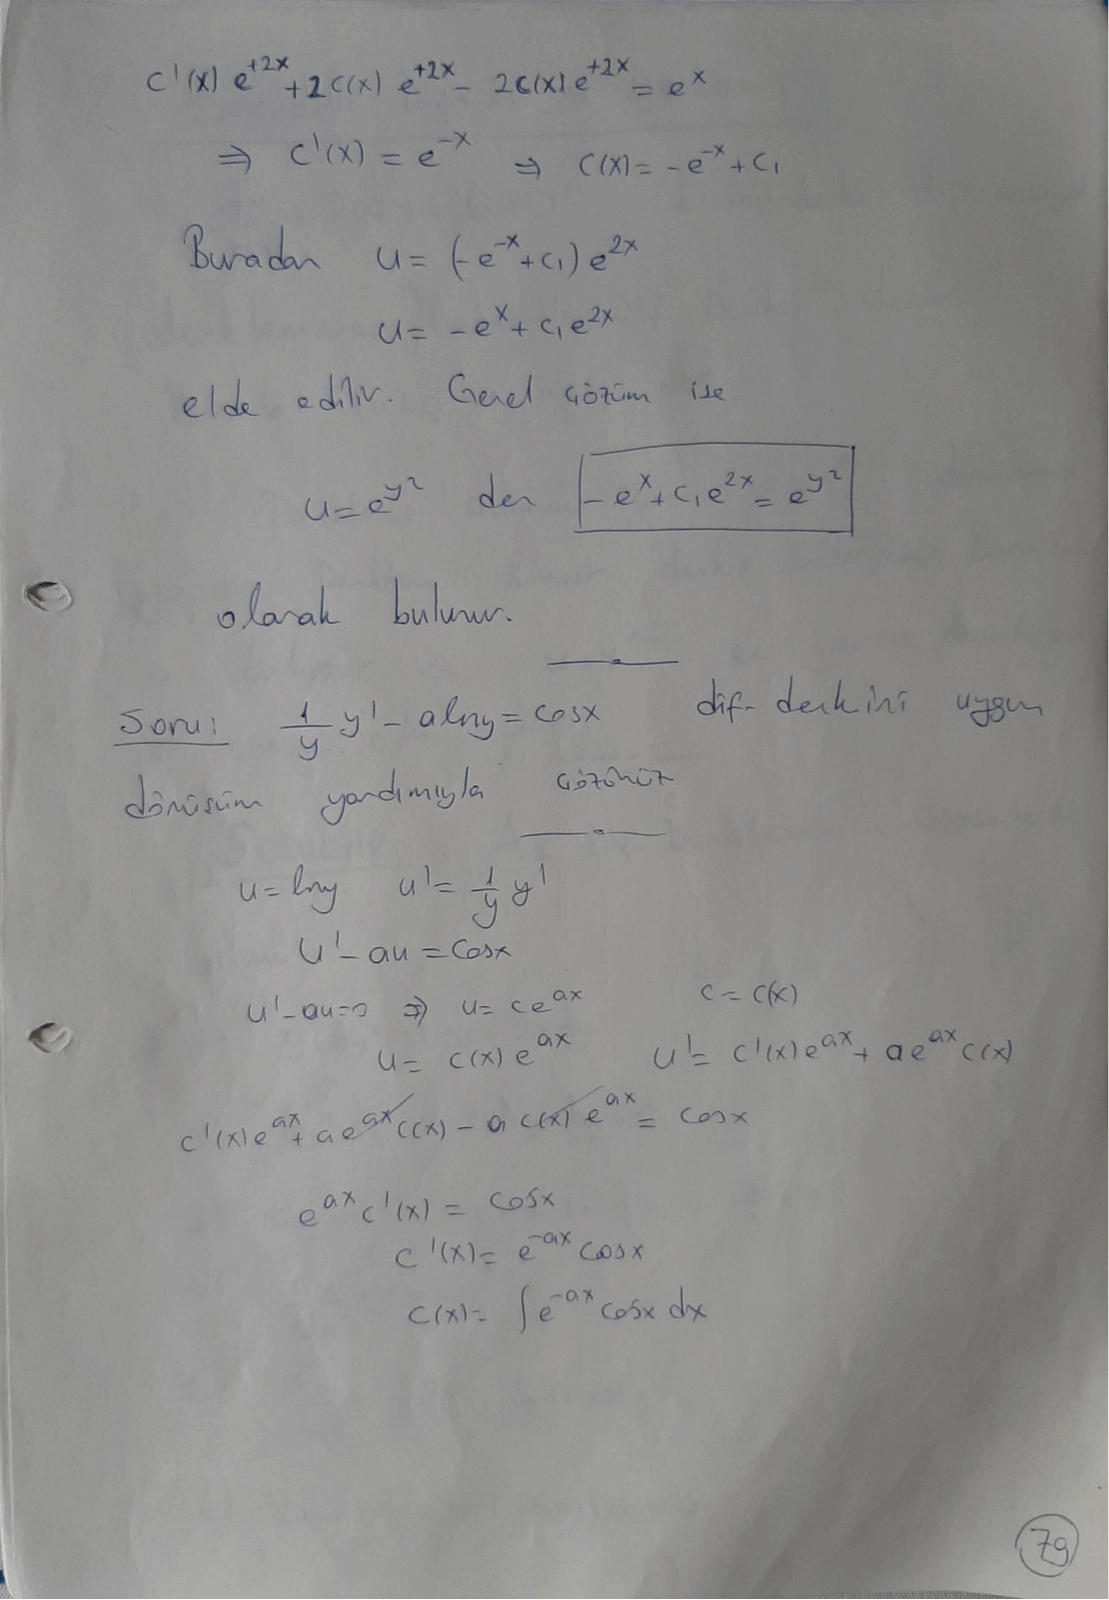 c'(x) e^{+2x} + 2c(x) e^{+2x} - 2c(x) e^{+2x} = e^x
⇒ c'(x) = e^{-x} ⇒ c(x) = -e^{-x} + c₁
Buradan u = (-e^{-x} + c₁) e^{2x}
u = -e^x + c₁e^{2x}
elde edilir. Genel çözüm ise
u = e^{y²} den -e^x + c₁e^{2x} = e^{y²}
olarak bulunur.
Soru: 1/y y' - alny = cosx dif. denkini uygun
dönüşüm yardımıyla çözünüz
u = lny u' = 1/y y'
u' - au = cosx
u' - au = 0 ⇒ u = ce^{ax} c = c(x)
u = c(x) e^{ax} u' = c'(x)e^{ax} + ae^{ax}c(x)
c'(x)e^{ax} + ae^{ax}c(x) - a c(x) e^{ax} = cosx
e^{ax}c'(x) = cosx
c'(x) = e^{-ax} cosx
c(x) = ∫e^{-ax} cosx dx
79